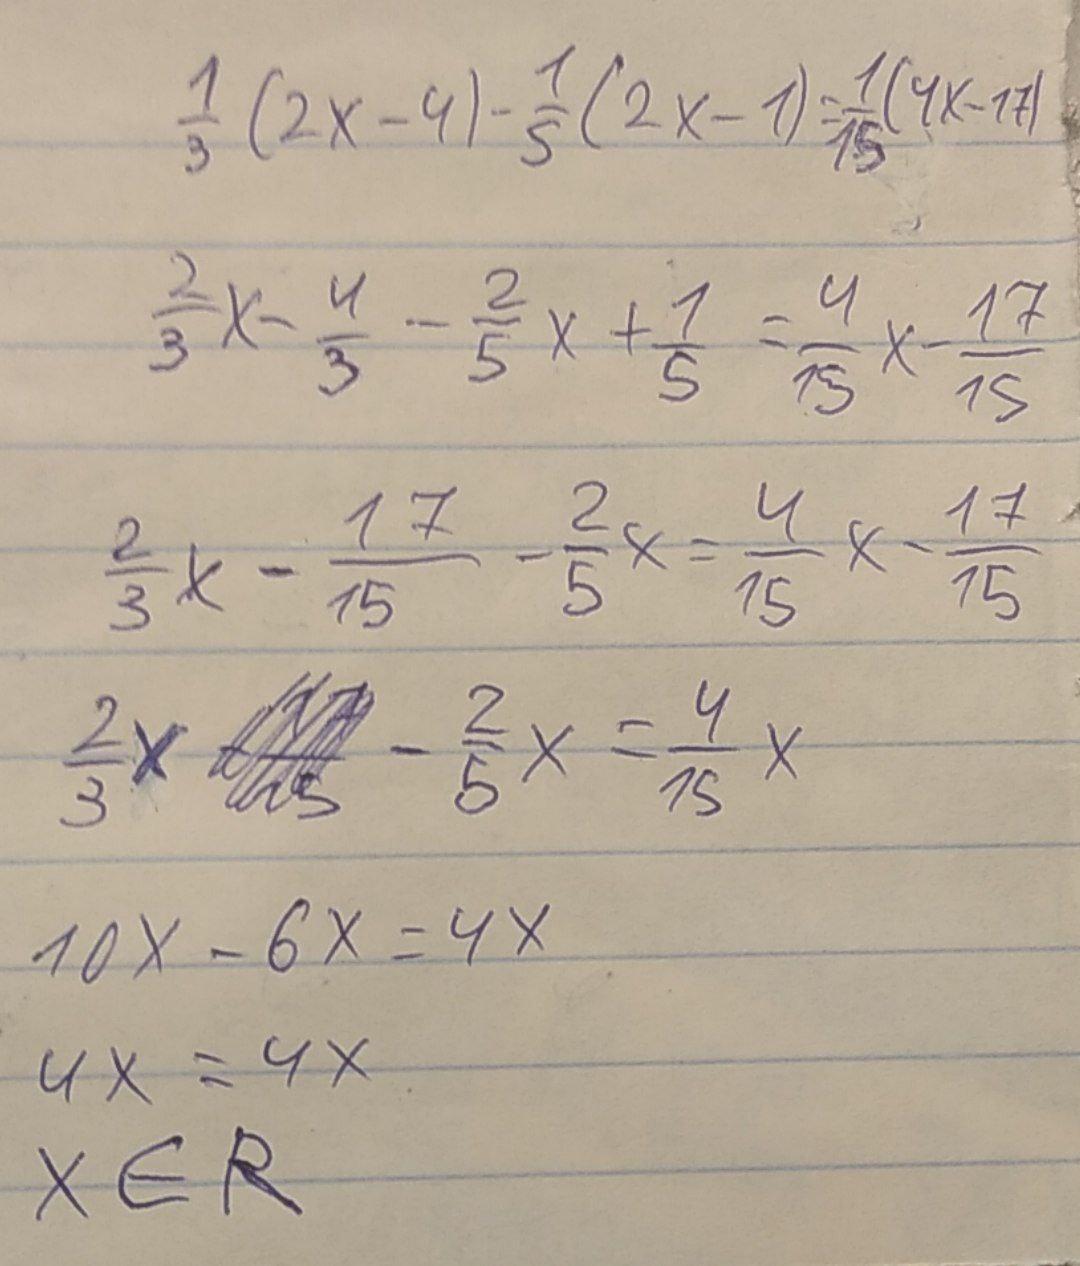 1/3 (2x-4) - 1/5 (2x-1) = 1/15 (4x-17)
2/3 x - 4/3 - 2/5 x + 1/5 = 4/15 x - 17/15
2/3 x - 17/15 - 2/5 x = 4/15 x - 17/15
2/3 x - 2/5 x = 4/15 x
10x - 6x = 4x
4x = 4x
x ∈ R